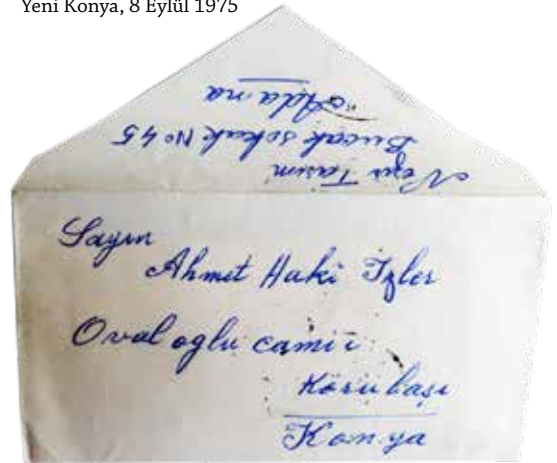 Yeni Konya, 8 Eylül 1975
Bucak sokak No 45
Adana
Sayın
Ahmet Haki İzler
Ovaloglu camii
Konya